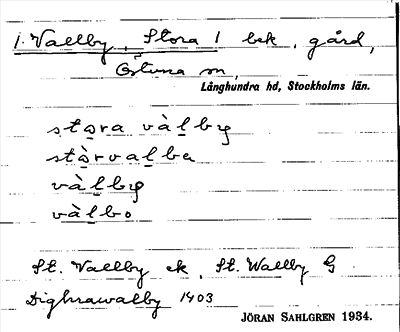 1. Vallby, Stora 1 bek, gård,
Östuna sn,
Långhundra hd, Stockholms län.
stora vàlby
stòrvalba
vàlby
vàlbo
St. Vallby ek, St. Wallby G
Dighrawalby 1403
JÖRAN SAHLGREN 1934.